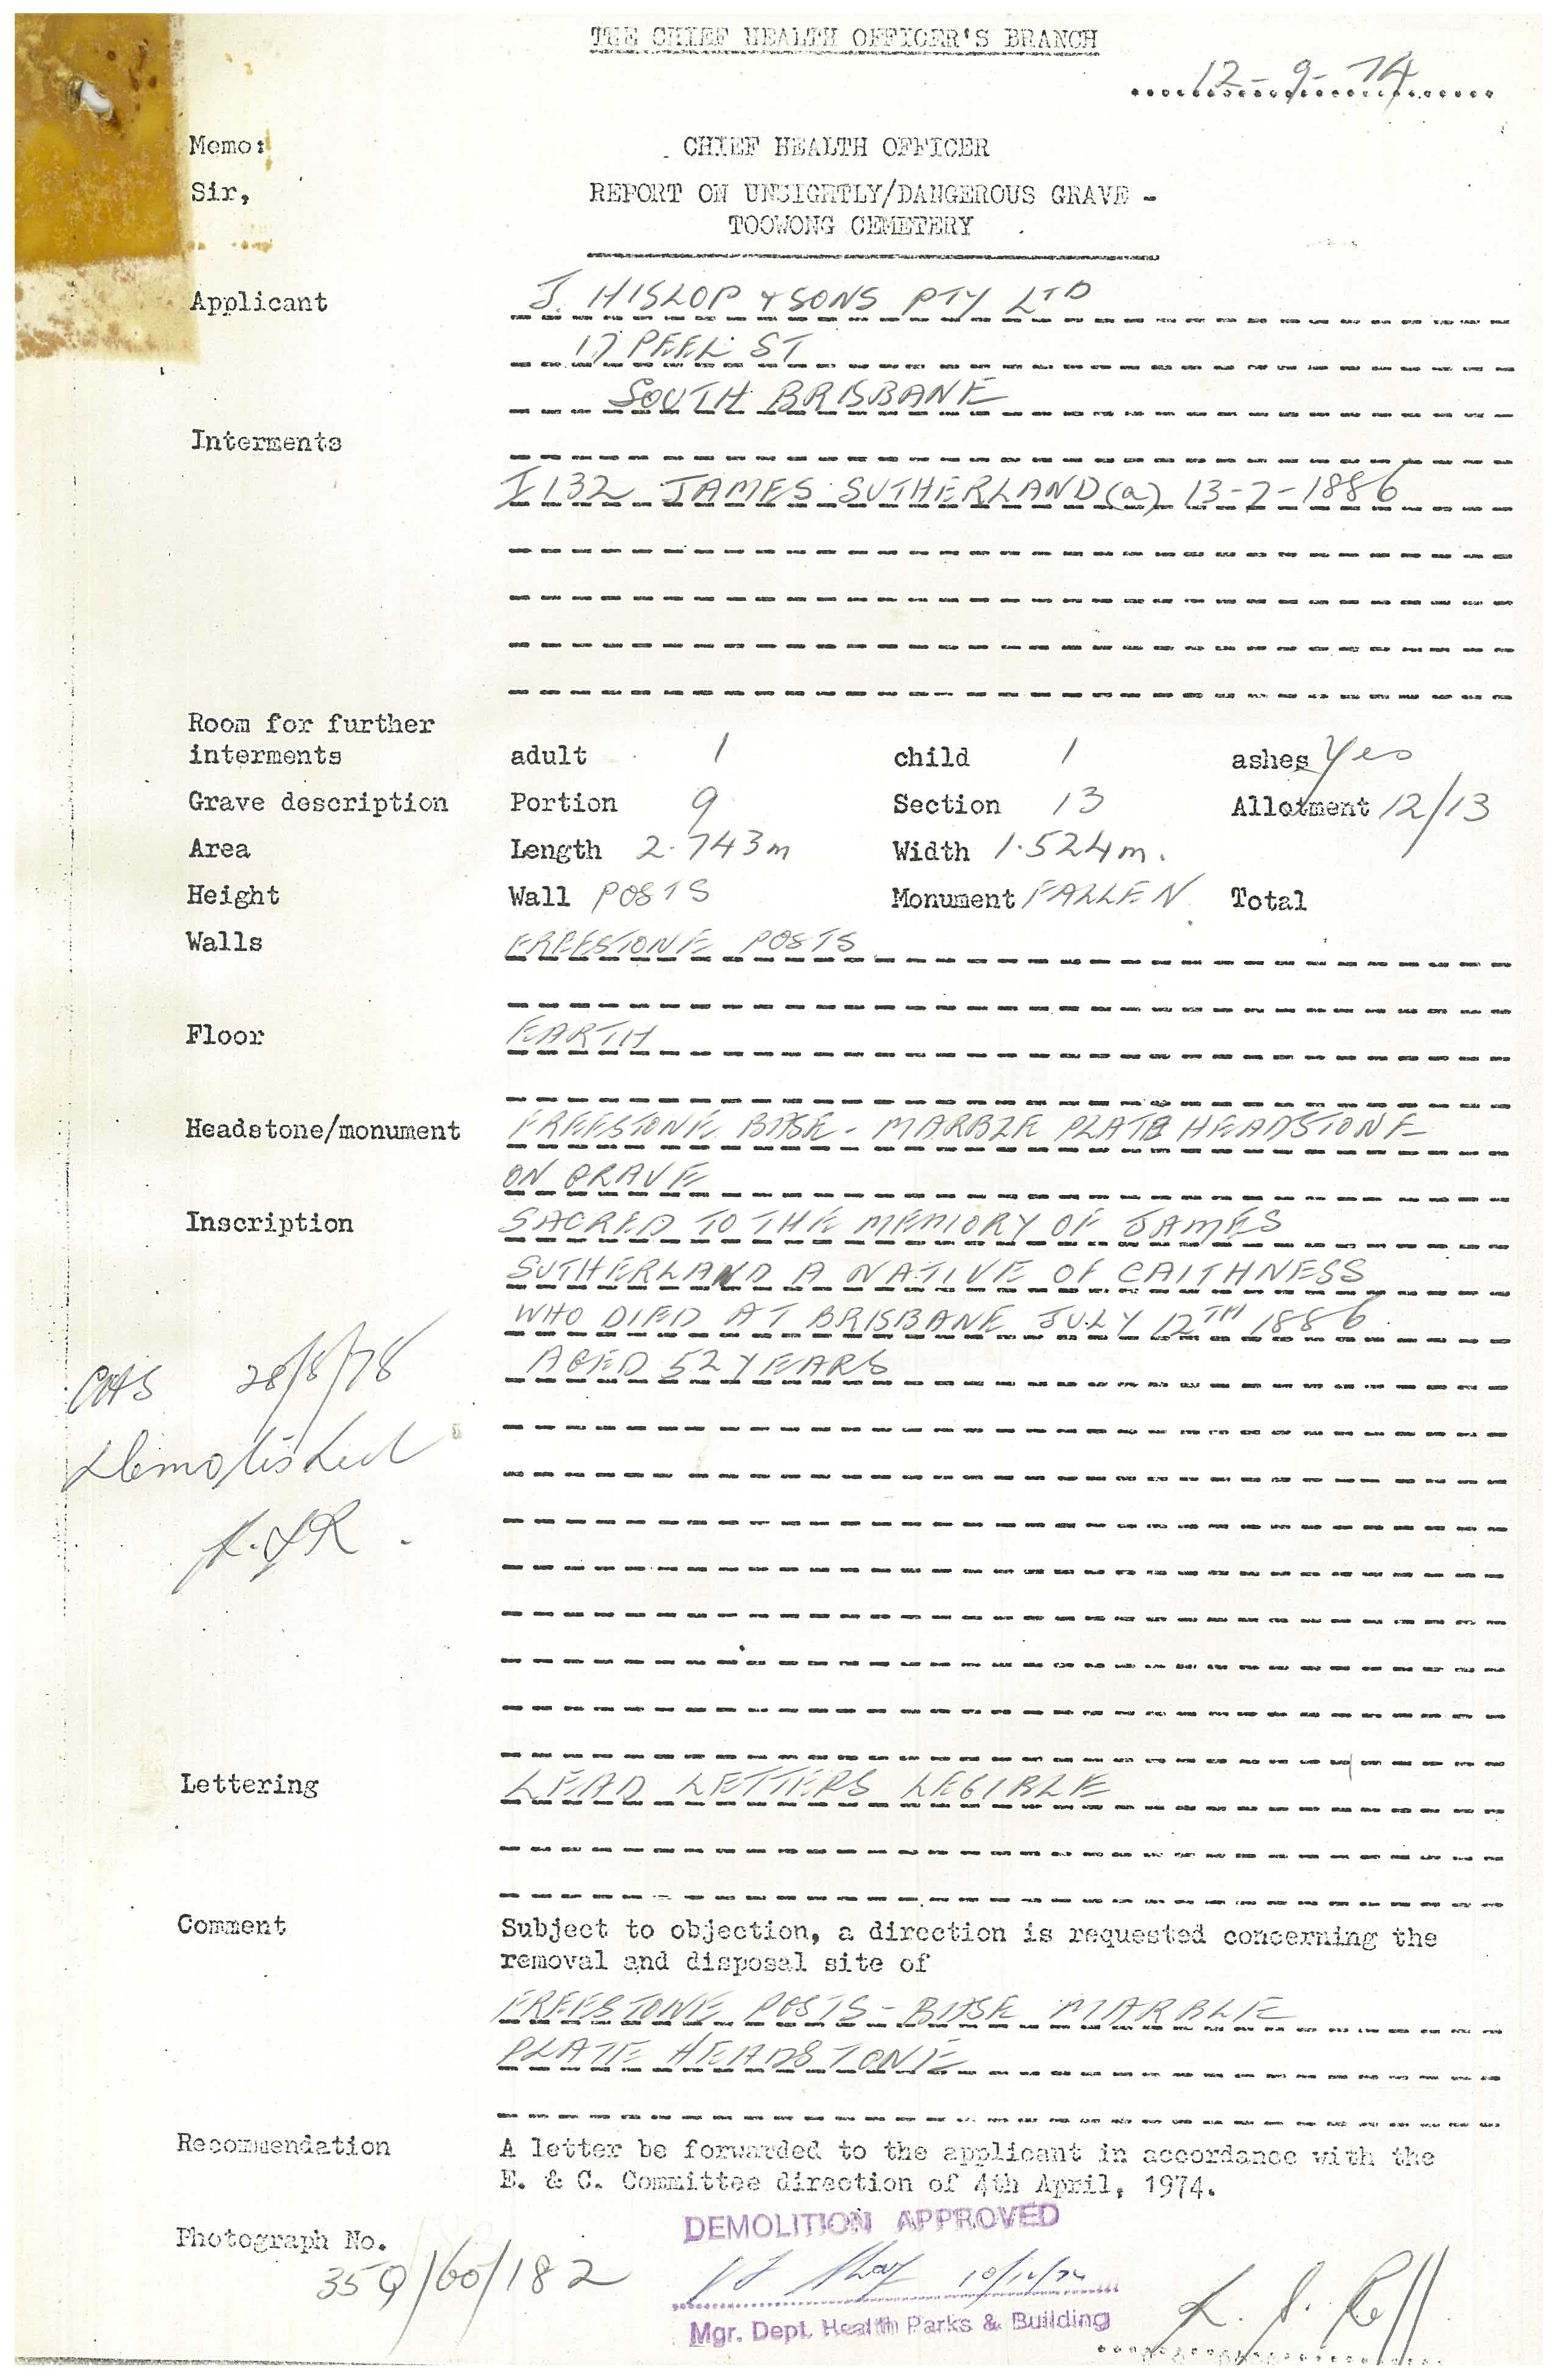 THE CHIEF HEALTH OFFICER'S BRANCH
12-9-74
Memo: CHIEF HEALTH OFFICER
Sir, REPORT ON UNSIGHTLY/DANGEROUS GRAVE -
TOOWONG CEMETERY
Applicant J. HISLOP & SONS PTY LTD
17 PEEL ST
SOUTH BRISBANE
Interments
I 132 JAMES SUTHERLAND (a) 13-7-1886
Room for further
interments adult 1 child 1 ashes Yes
Grave description Portion 9 Section 13 Allotment 12/13
Area Length 2.743m Width 1.524m.
Height Wall POSTS Monument FALLEN Total
Walls FREESTONE POSTS
Floor EARTH
Headstone/monument FREESTONE BASE - MARBLE PLATE HEADSTONE
ON GRAVE
Inscription SACRED TO THE MEMORY OF JAMES
SUTHERLAND A NATIVE OF CAITHNESS
WHO DIED AT BRISBANE JULY 12TH 1886
AGED 52 YEARS
28/8/78
Demolished
Lettering LEAD LETTERS LEGIBLE
Comment Subject to objection, a direction is requested concerning the
removal and disposal site of
FREESTONE POSTS - BASE MARBLE
PLATE HEADSTONE
Recommendation A letter be forwarded to the applicant in accordance with the
E. & C. Committee direction of 4th April, 1974.
DEMOLITION APPROVED
Photograph No.
35Q/60/182
10/12/74
Mgr. Dept. Health Parks & Building